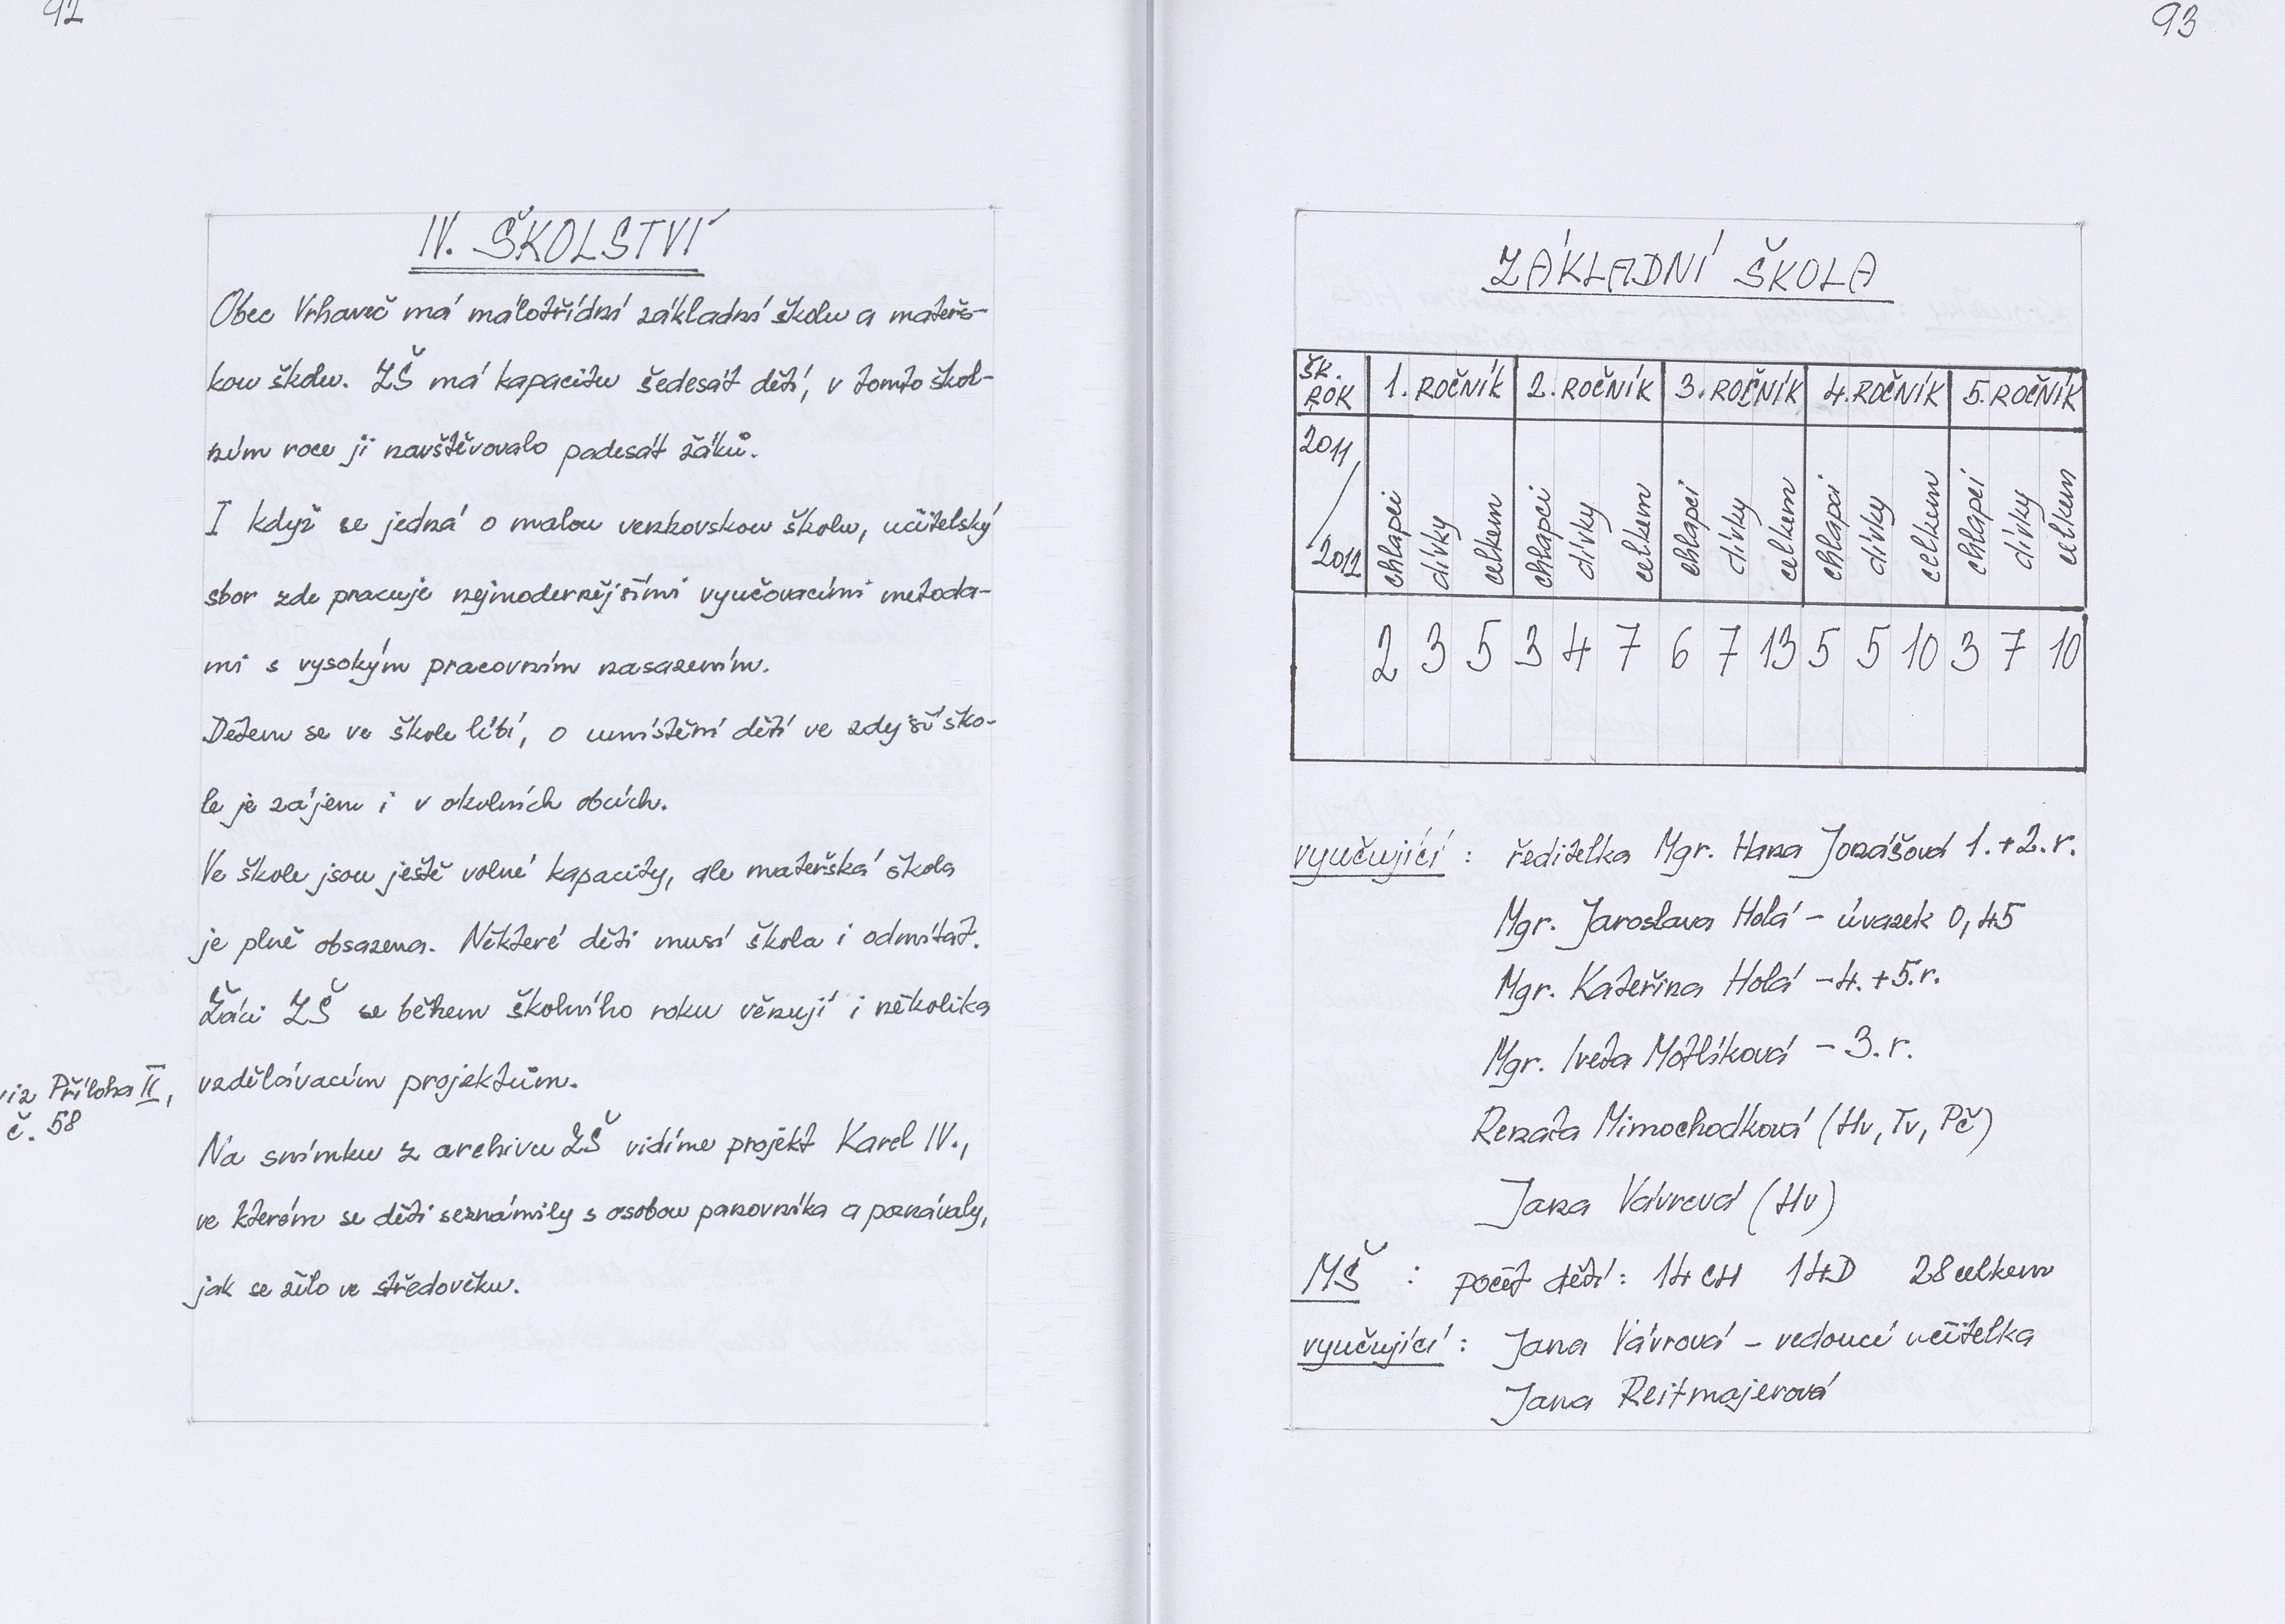 92
IV. ŠKOLSTVÍ
Obec Vrhaveč má málotřídní základní školu a mateřs-
kou školu. ZŠ má kapacitu šedesát dětí, v tomto škol-
ním roce ji navštěvovalo padesát žáků.
I když se jedná o malou venkovskou školu, učitelský
sbor zde pracuje nejmodernějšími vyučovacími metoda-
mi s vysokým pracovním nasazením.
Dětem se ve škole líbí, o umístění dětí ve zdejší ško-
le je zájem i v okolních obcích.
Ve škole jsou ještě volné kapacity, ale mateřská škola
je plně obsazena. Některé děti musí škola i odmítat.
Žáci ZŠ se během školního roku věnují i několika
vzdělávacím projektům.
viz Příloha II,
č. 58
Na snímku z archivu ZŠ vidíme projekt Karel IV.,
ve kterém se děti seznámily s osobou panovníka a poznávaly,
jak se žilo ve středověku.
93
ZÁKLADNÍ ŠKOLA
ŠK. ROK 1. ROČNÍK 2. ROČNÍK 3. ROČNÍK 4. ROČNÍK 5. ROČNÍK
2011/2012 chlapci dívky celkem chlapci dívky celkem chlapci dívky celkem chlapci dívky celkem chlapci dívky celkem
2 3 5 3 4 7 6 7 13 5 5 10 3 7 10
vyučující : ředitelka Mgr. Hana Jonášová 1.+2. r.
Mgr. Jaroslava Holá – úvazek 0,45
Mgr. Kateřina Holá – 4.+5. r.
Mgr. Iveta Motlíková – 3. r.
Renata Mimochodková (Hv, Tv, Pč)
Jana Vávrová (Hv)
MŠ : počet dětí : 14 CH 14 D 28 celkem
vyučující : Jana Vávrová – vedoucí učitelka
Jana Reitmajerová